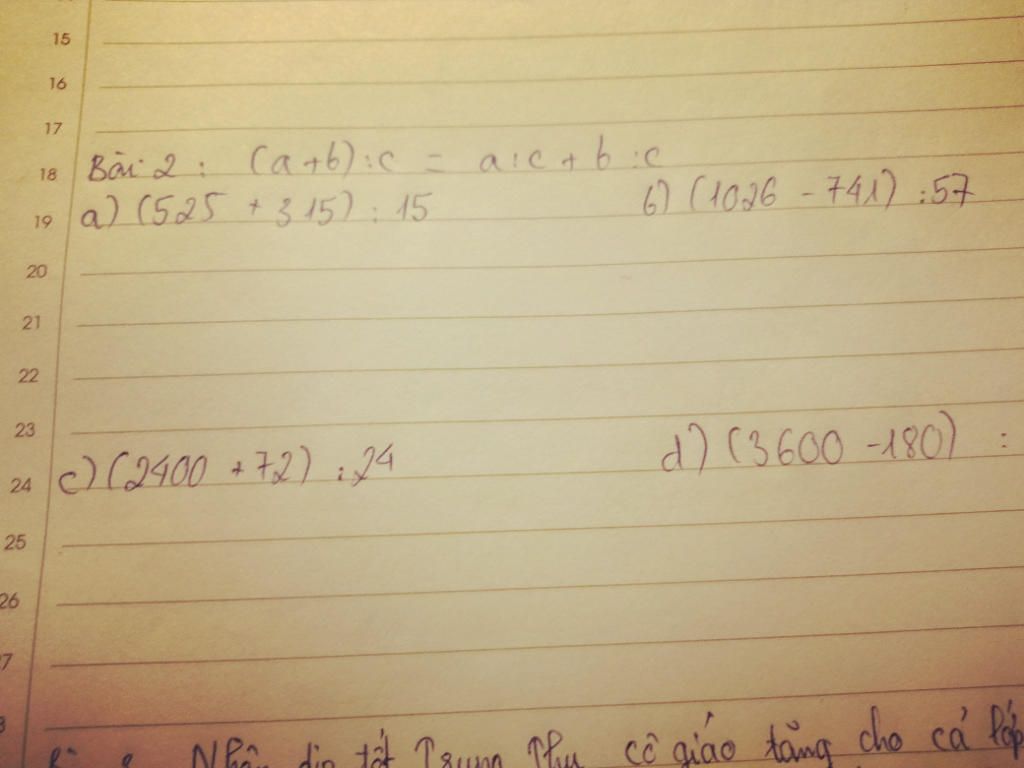 15
16
17
18 Bài 2 : (a+b) : c = a : c + b : c
19 a) (525 + 315) : 15 b) (1026 - 741) : 57
20
21
22
23
24 c) (2400 + 72) : 24 d) (3600 - 180) :
25
26
7
8
Nhân dịp tết Trung Thu cô giáo tặng cho cả lớp